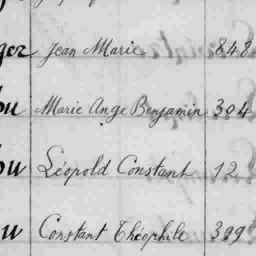 Jean Marie 848
Marie Ange Benjamin 304
Léopold Constant 12
Constant Théophile 399